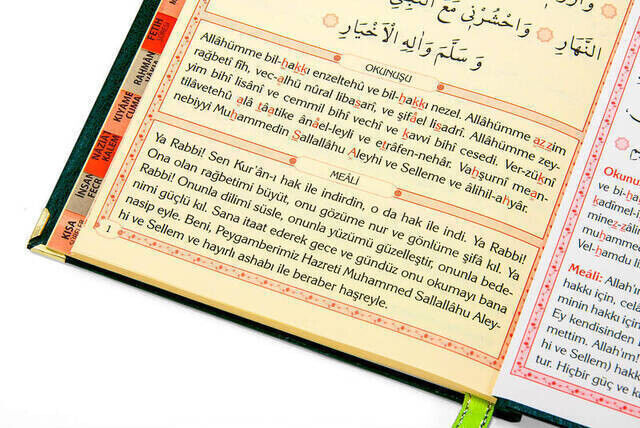 النَّهَارِ وَاحْشُرْنِي مَعَ النَّبِيِّ
وَسَلَّمَ وَاٰلِهِ الْاَخْيَارِ
OKUNUŞU
Allâhümme bil-hakkı enzeltehû ve bil-hakkı nezel. Allâhümme azzim
rağbetî fîh, vec-alhü nûral libasarî, ve şifâel lisadrî. Allâhümme zey-
yim bihî lisânî ve cemmil bihî vechî ve kavvi bihî cesedî. Ver-zûknî
tilâvetehû alâ tâatike ânâel-leyli ve etrâfen-nehâr. Vahşurnî mean-
nebiyyi Muhammedin Sallallâhu Aleyhi ve Selleme ve âlihil-ahyâr.
MEÂLİ
Ya Rabbi! Sen Kur'ân-ı hak ile indirdin, o da hak ile indi. Ya Rabbi!
Ona olan rağbetimi büyüt, onu gözüme nur ve gönlüme şifâ kıl. Ya
Rabbi! Onunla dilimi süsle, onunla yüzümü güzelleştir, onunla bede-
nimi güçlü kıl. Sana itaat ederek gece ve gündüz onu okumayı bana
nasip eyle. Beni, Peygamberimiz Hazreti Muhammed Sallallâhu Aley-
hi ve Sellem ve hayırlı ashabı ile beraber haşreyle.
1
FETİH
RAHMÂN
KIYÂME
CUMA
NAZİAT
KALEM
İNSAN
FECR
KISA
Okunu
ve bi-h
kadîmel
minez-z
muham
Vel-hamdu l
Meâli: Allah'ı
hakkı için, cel
minin hakkı iç
Ey kendisinden
mettim. Allah'ım!
hi ve Sellem) hakk
tur. Hiçbir güç ve k